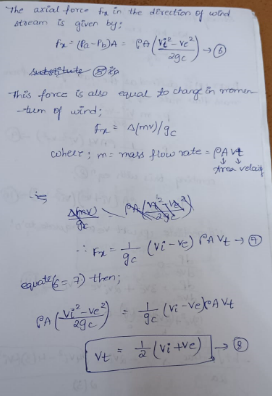 The axial force Fx in the direction of wind
stream is given by;
Fx = (Pa - Pb)A = ρA (Vi² - Ve² / 2gc) → ⑥
substitute
This force is also equal to change in momen
-tum of wind;
Fx = Δ(mv)/gc
where; m = mass flow rate = ρAVt
↓ ↓
Area velocity
Δ(mv)/gc
∴ Fx = 1/gc (Vi - Ve) ρA Vt → ⑦
equate 6 = 7) then;
ρA (Vi² - Ve² / 2gc) = 1/gc (Vi - Ve) ρA Vt
Vt = 1/2 (Vi + Ve) → ⑧